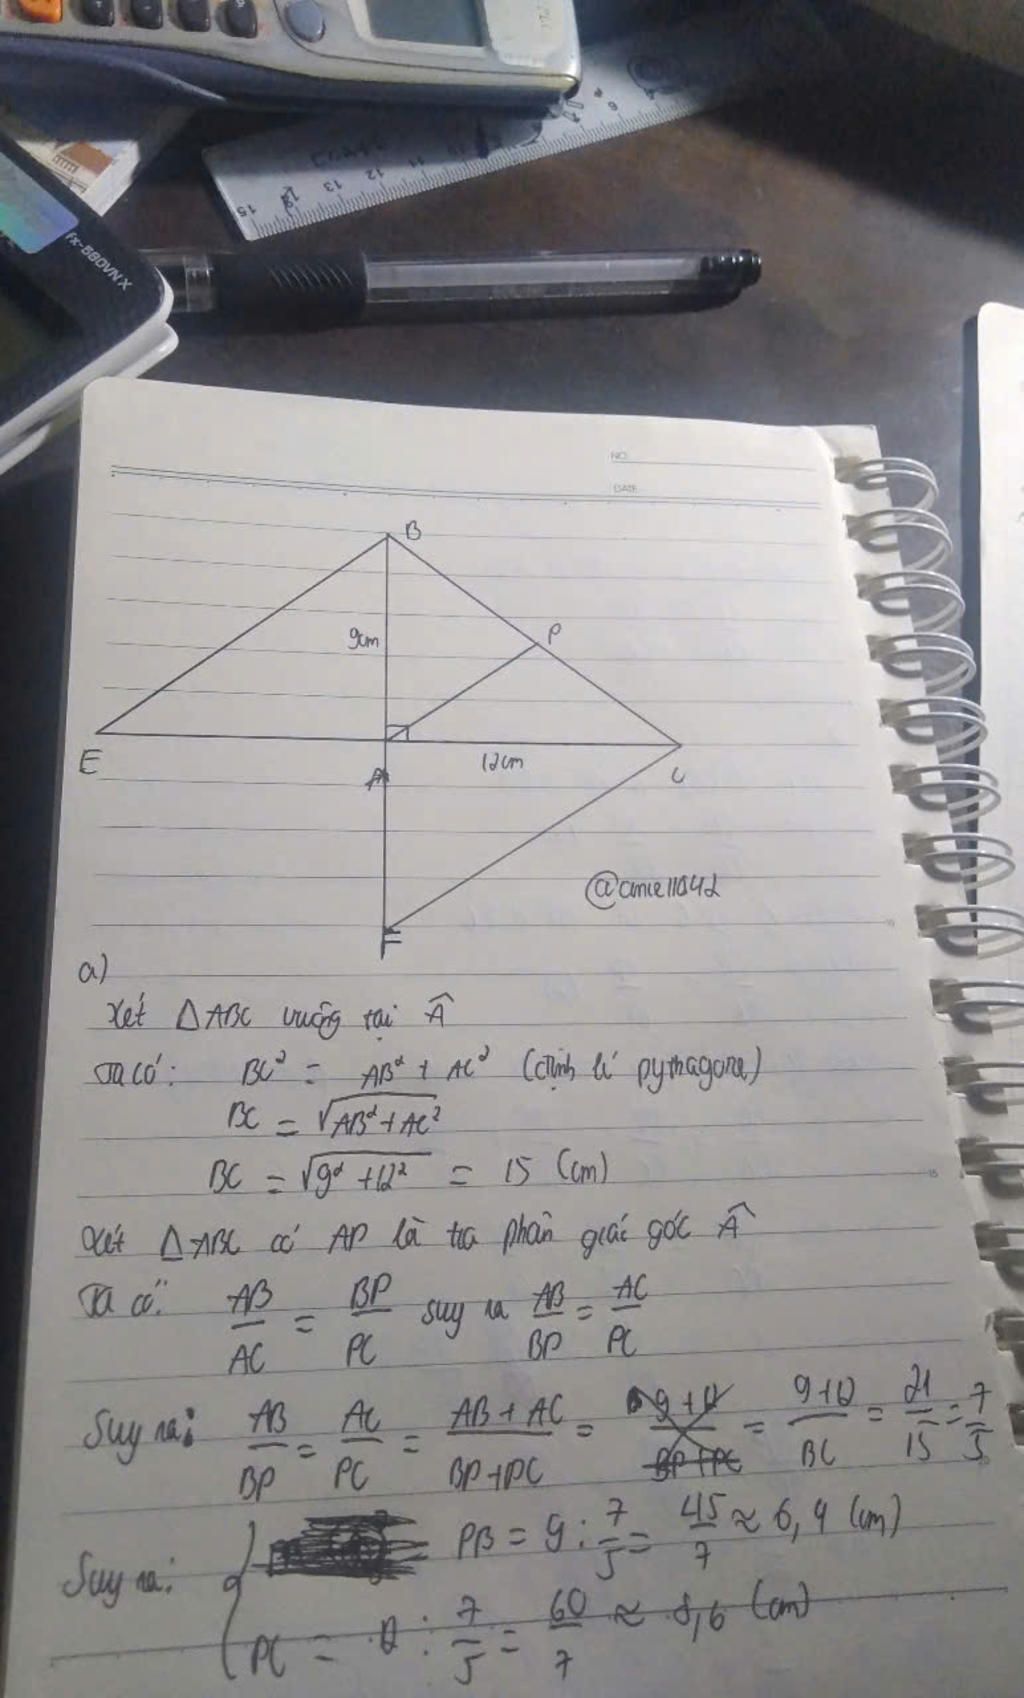 15 14 13 12 11 10 9
fx-580VNX
NO
DATE
B
9cm
P
E
A
12cm
C
@amie11042
F
a)
Xét △ABC vuông tại Â
Ta có: BC² = AB² + AC² (định lí pythagore)
BC = √AB² + AC²
BC = √9² + 12² = 15 (cm)
Xét △ABC có AP là tia phân giác góc Â
Ta có: AB/AC = BP/PC suy ra AB/BP = AC/PC
Suy ra: AB/BP = AC/PC = AB + AC/BP + PC = 9 + 12/BP + PC = 9 + 12/BC = 21/15 = 7/5
Suy ra: { PB = 9 : 7/5 = 45/7 ≈ 6,4 (cm)
PC = 12 : 7/5 = 60/7 ≈ 8,6 (cm)